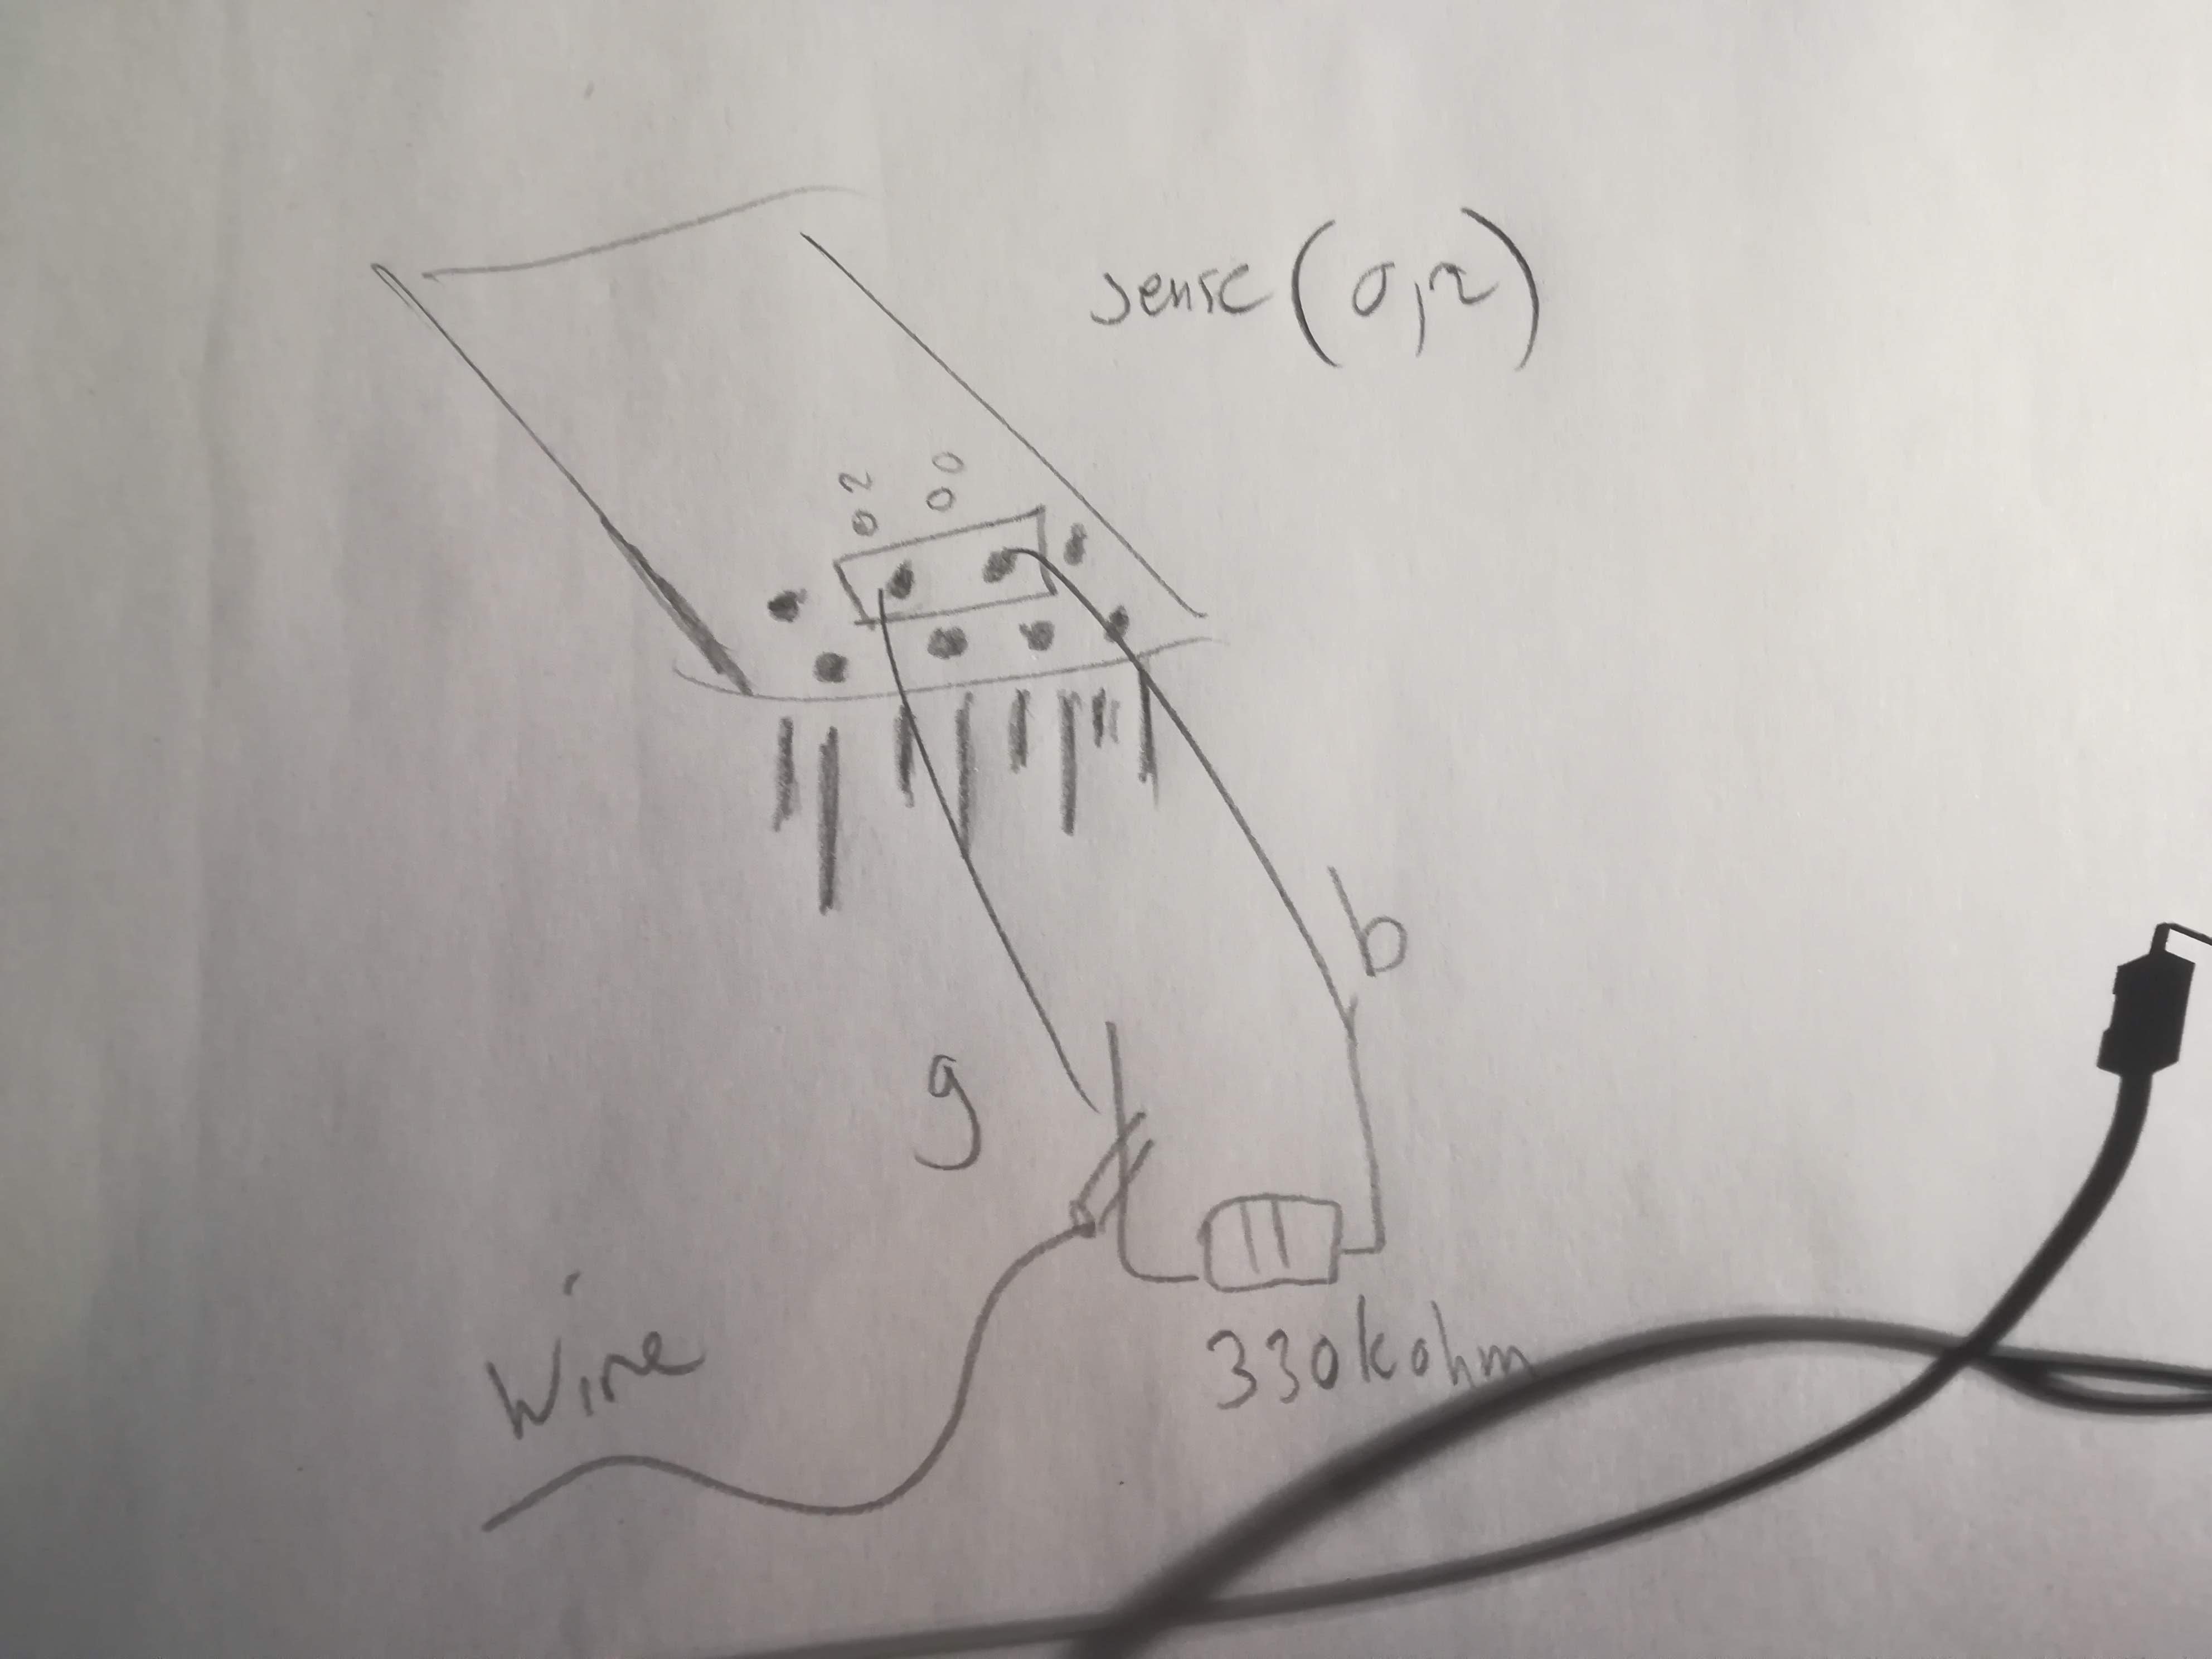 sense (0,2)
02 00
b
g
Wire
330kohm